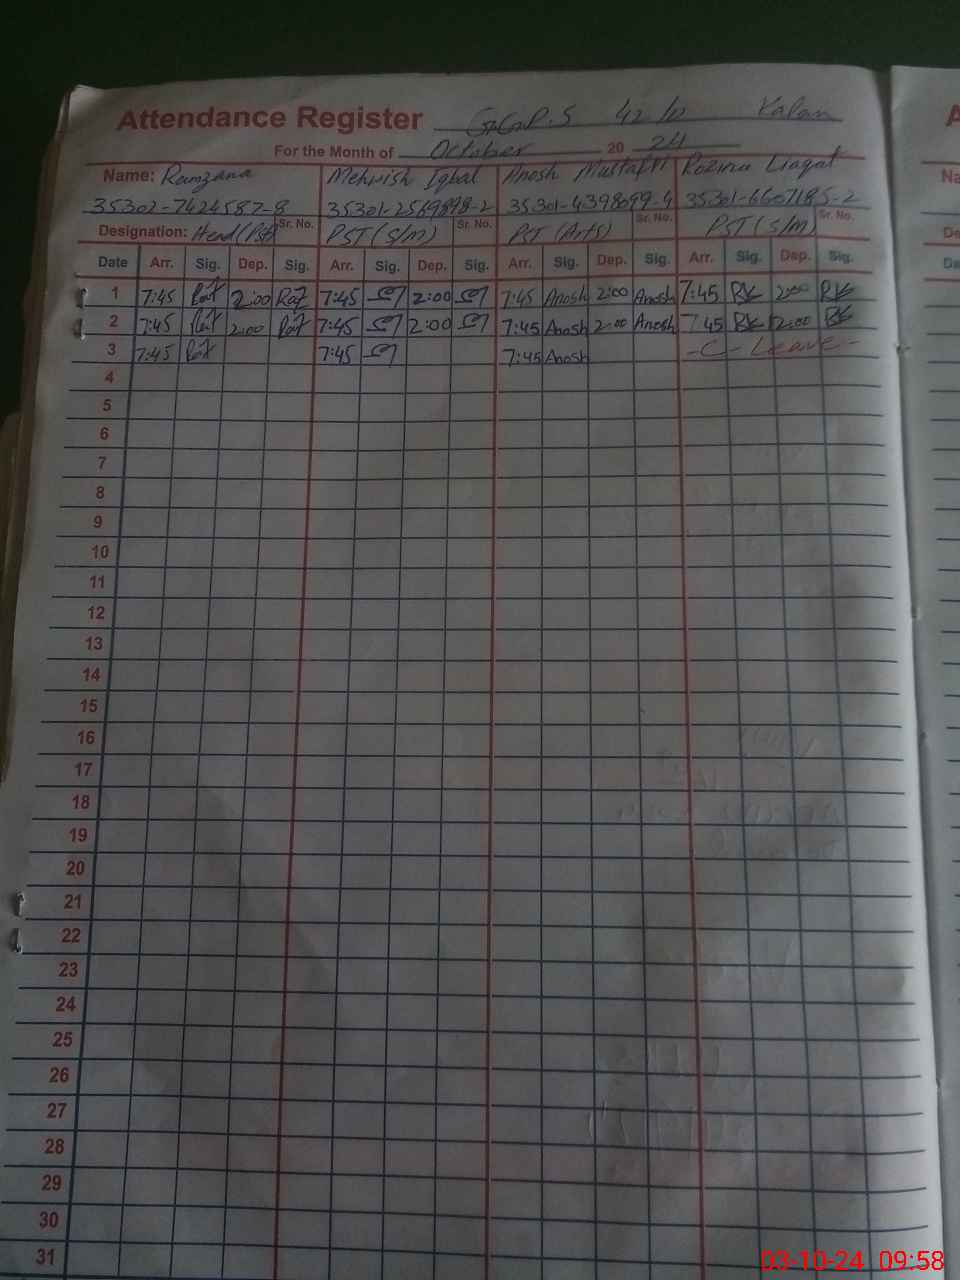 Attendance Register G.G.P.S 42/D Kalan
For the Month of October 20 24
Name: Ramzana Mehwish Iqbal Anosh Mustafa Rozina Liaqat
35302-7424587-8 35301-2569898-2 35301-4398699-4 35301-6607185-2
Designation: Head(Pst) Sr. No. PST (S/m) Sr. No. PST (Arts) Sr. No. PST (S/m) Sr. No.
Date Arr. Sig. Dep. Sig. Arr. Sig. Dep. Sig. Arr. Sig. Dep. Sig. Arr. Sig. Dep. Sig.
1 7:45 2:00 7:45 2:00 7:45 Anosh 2:00 Anosh 7:45 RK 2:00 RK
2 7:45 2:00 7:45 2:00 7:45 Anosh 2:00 Anosh 7:45 RK 2:00 RK
3 7:45 7:45 7:45 Anosh -C-Leave-
4
5
6
7
8
9
10
11
12
13
14
15
16
17
18
19
20
21
22
23
24
25
26
27
28
29
30
31
03-10-24 09:58